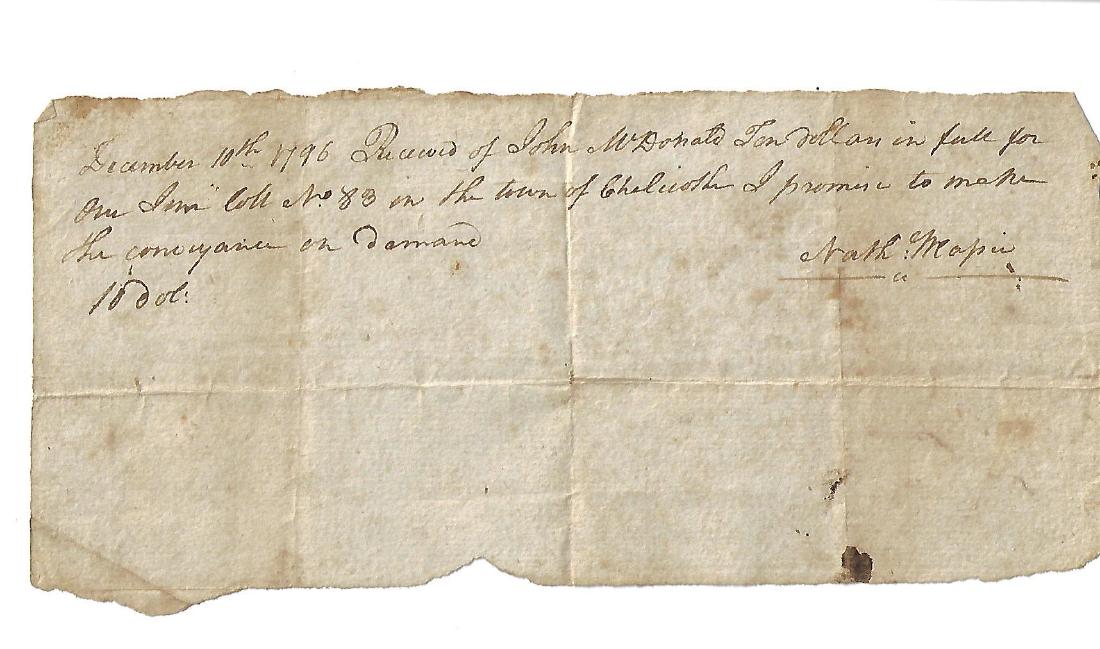 December 10th 1796 Received of John McDonald Ten dollars in full for
One Inn Lott No 83 in the town of Chelicothe I promise to make
the conveyance on Demand
Nath: Massie
10 Dol: